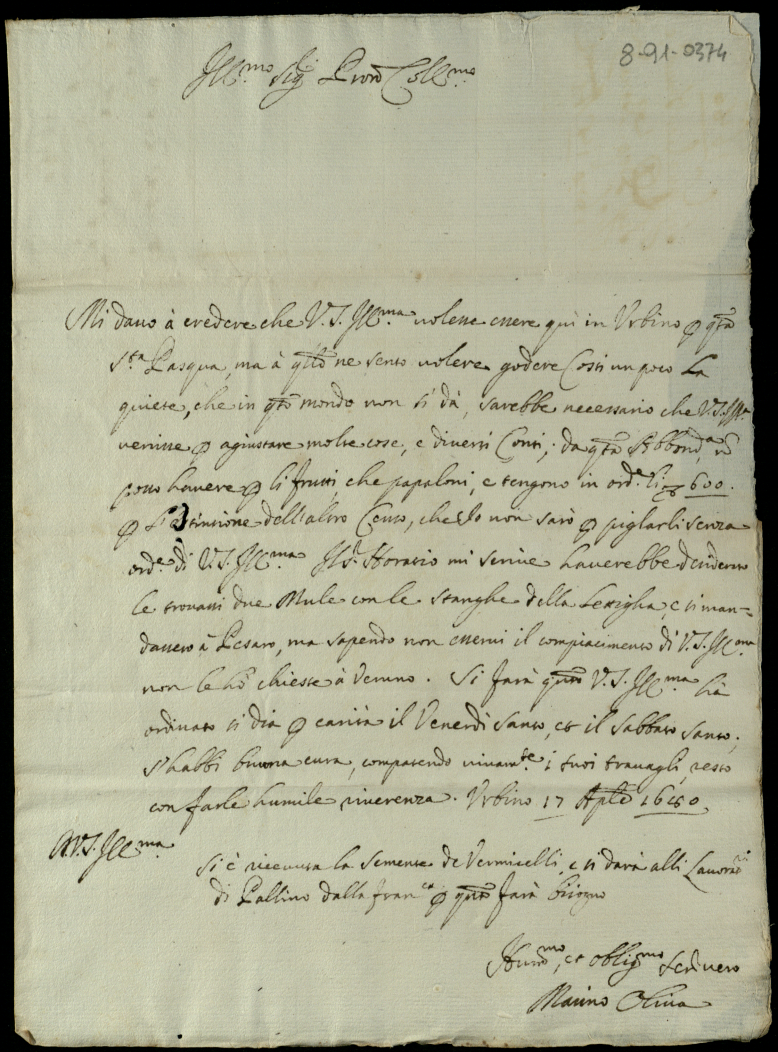 8-91-0374
Ill.mo Sig.r Pron Coll.mo
Mi davo à credere che V.S. Ill.ma volesse essere quì in Urbino p qsta
S.ta Pasqua, ma à qllo ne sento volere godere Costì un poco la
quiete, che in qsto mondo non si dà, sarebbe necessario che V.S. Ill.ma
venisse p agiustare molte cose, e diversi Conti; da qsta nō
posso havere p li frutti, che papaloni, e tengono in ord.e 600.
p l'estintione dell'altro Censo, che Io non sarò p pigliarli senza
ord.e di V.S. Ill.ma Il S.r Horatio mi scrive haverebbe desiderio
le trovassi due Mule con le stanghe della Lettigha, e si man=
dassero à Pesaro, ma sapendo non esservi il compiacimento di V.S. Ill.ma
non le hò chieste à Veruno. Si farà qnto V.S. Ill.ma hà
ordinato si dia p carità il Venerdì Santo, et il Sabbato Santo,
s'habbi buona cura, compatendo vivam.te i suoi travagli, resto
con farle humile riverenza. Urbino 17 Aplē 1680.
A V.S. Ill.ma
Si è ricevuta la Semente de Vermicelli, e si darà alli Lavorri
di Pallino dalla Fran.ca p qnto farà bisogno
Hum.mo, et oblig.mo Ser.re vero
Marino Oliva